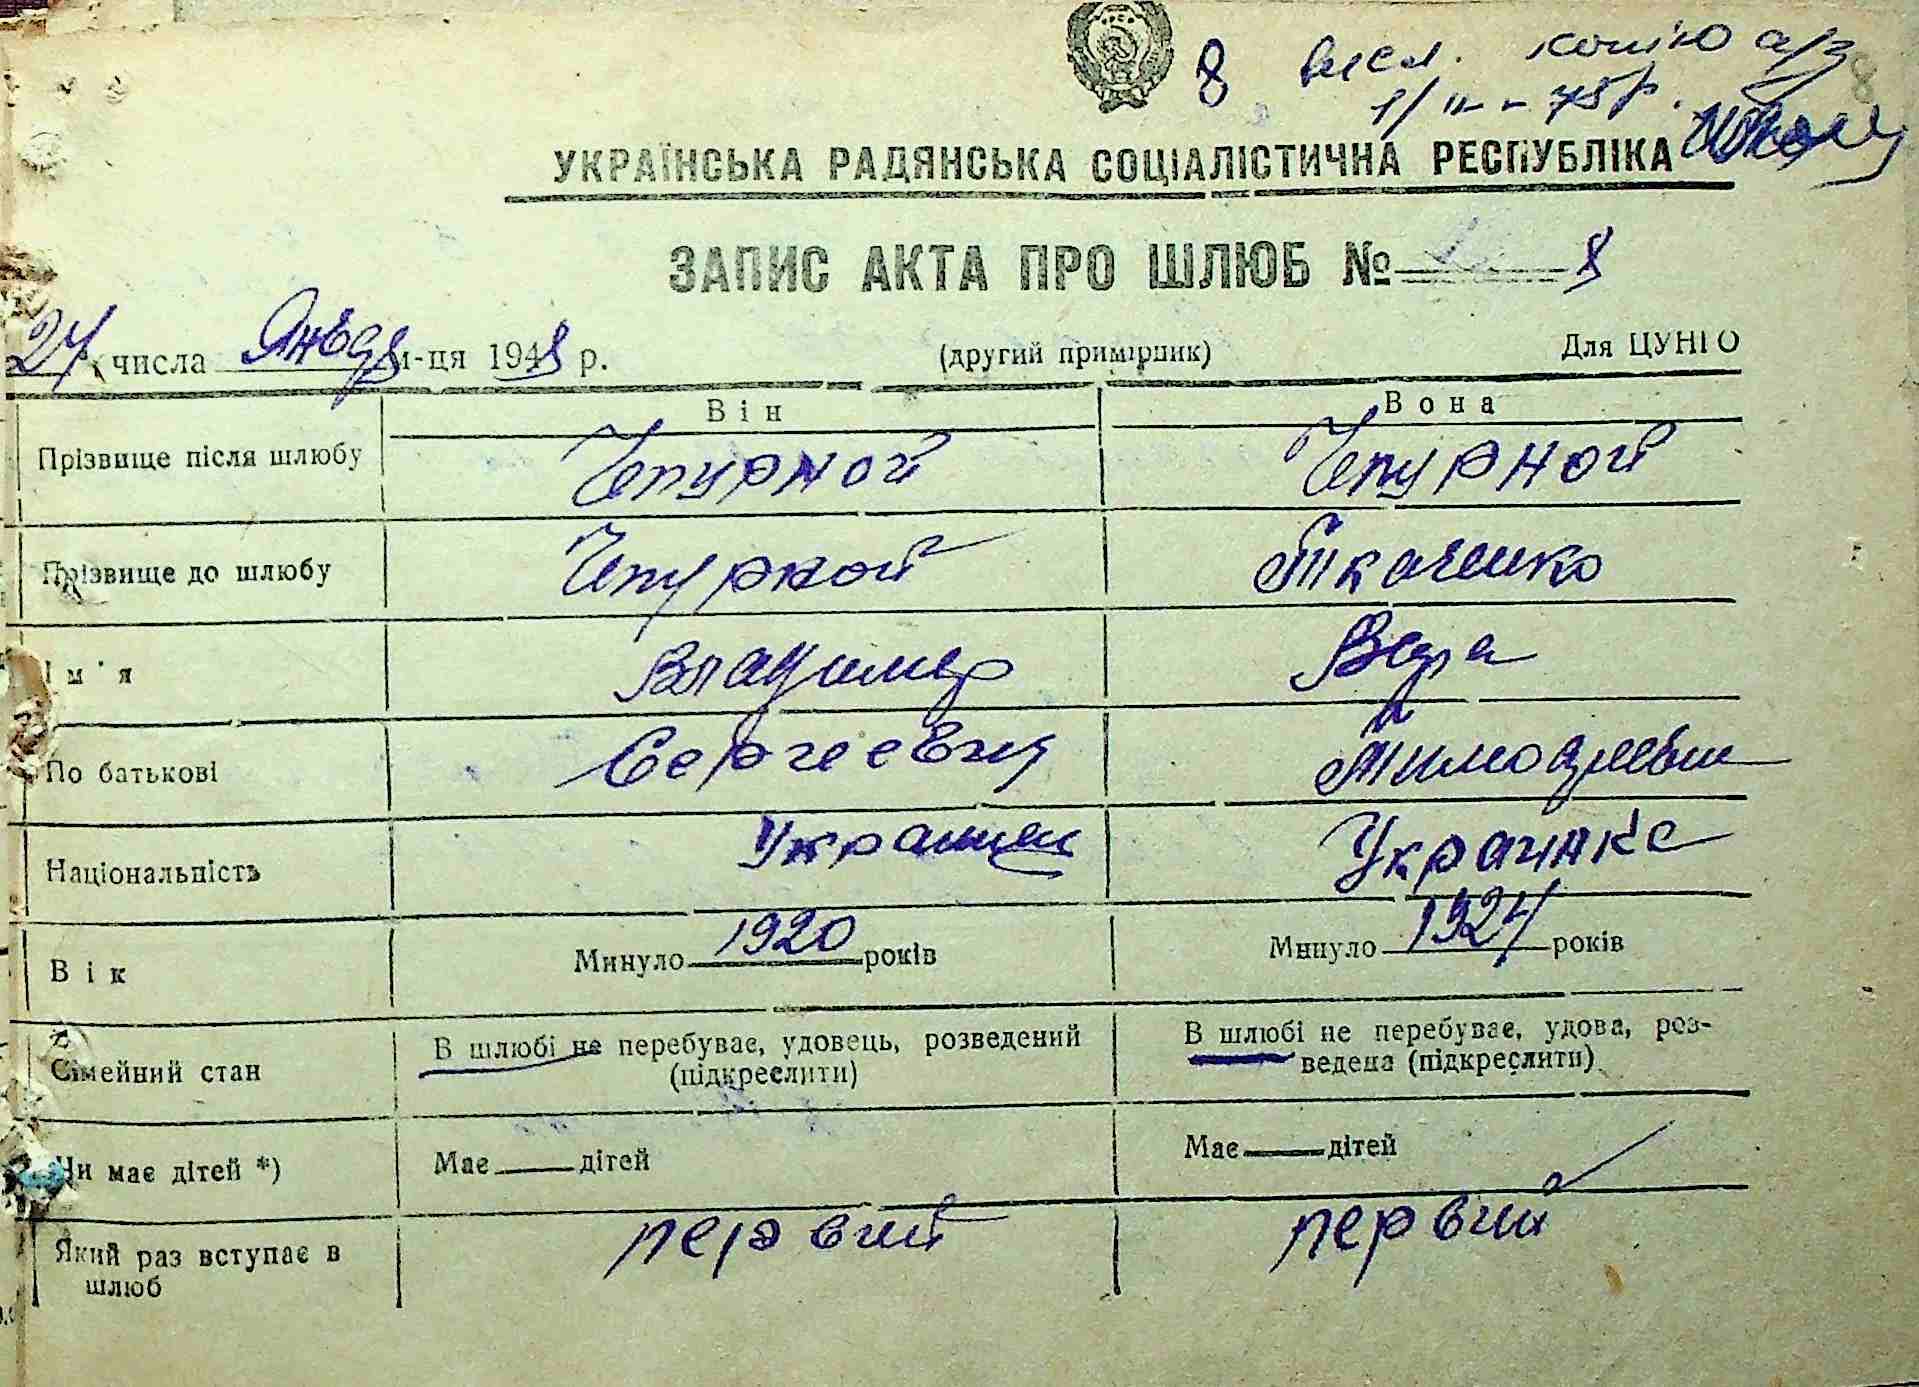 8 висл. копію а/з
1/II - 75р.
8
УКРАЇНСЬКА РАДЯНСЬКА СОЦІАЛІСТИЧНА РЕСПУБЛІКА
ЗАПИС АКТА ПРО ШЛЮБ № 8
27 числа Января м-ця 1948 р. (другий примірник) Для ЦУНГО
Він Вона
Прізвище після шлюбу Чепурной Чепурной
Прізвище до шлюбу Чепурной Ткаченко
Ім'я Владимер Вера
По батькові Сергеевич
Національність Украинец Украинка
Вік Минуло 1920 років Минуло 1924 років
Сімейний стан В шлюбі не перебуває, удовець, розведений (підкреслити) В шлюбі не перебуває, удова, роз-
ведена (підкреслити)
Чи має дітей *) Має — дітей Має — дітей
Який раз вступає в шлюб первий первий